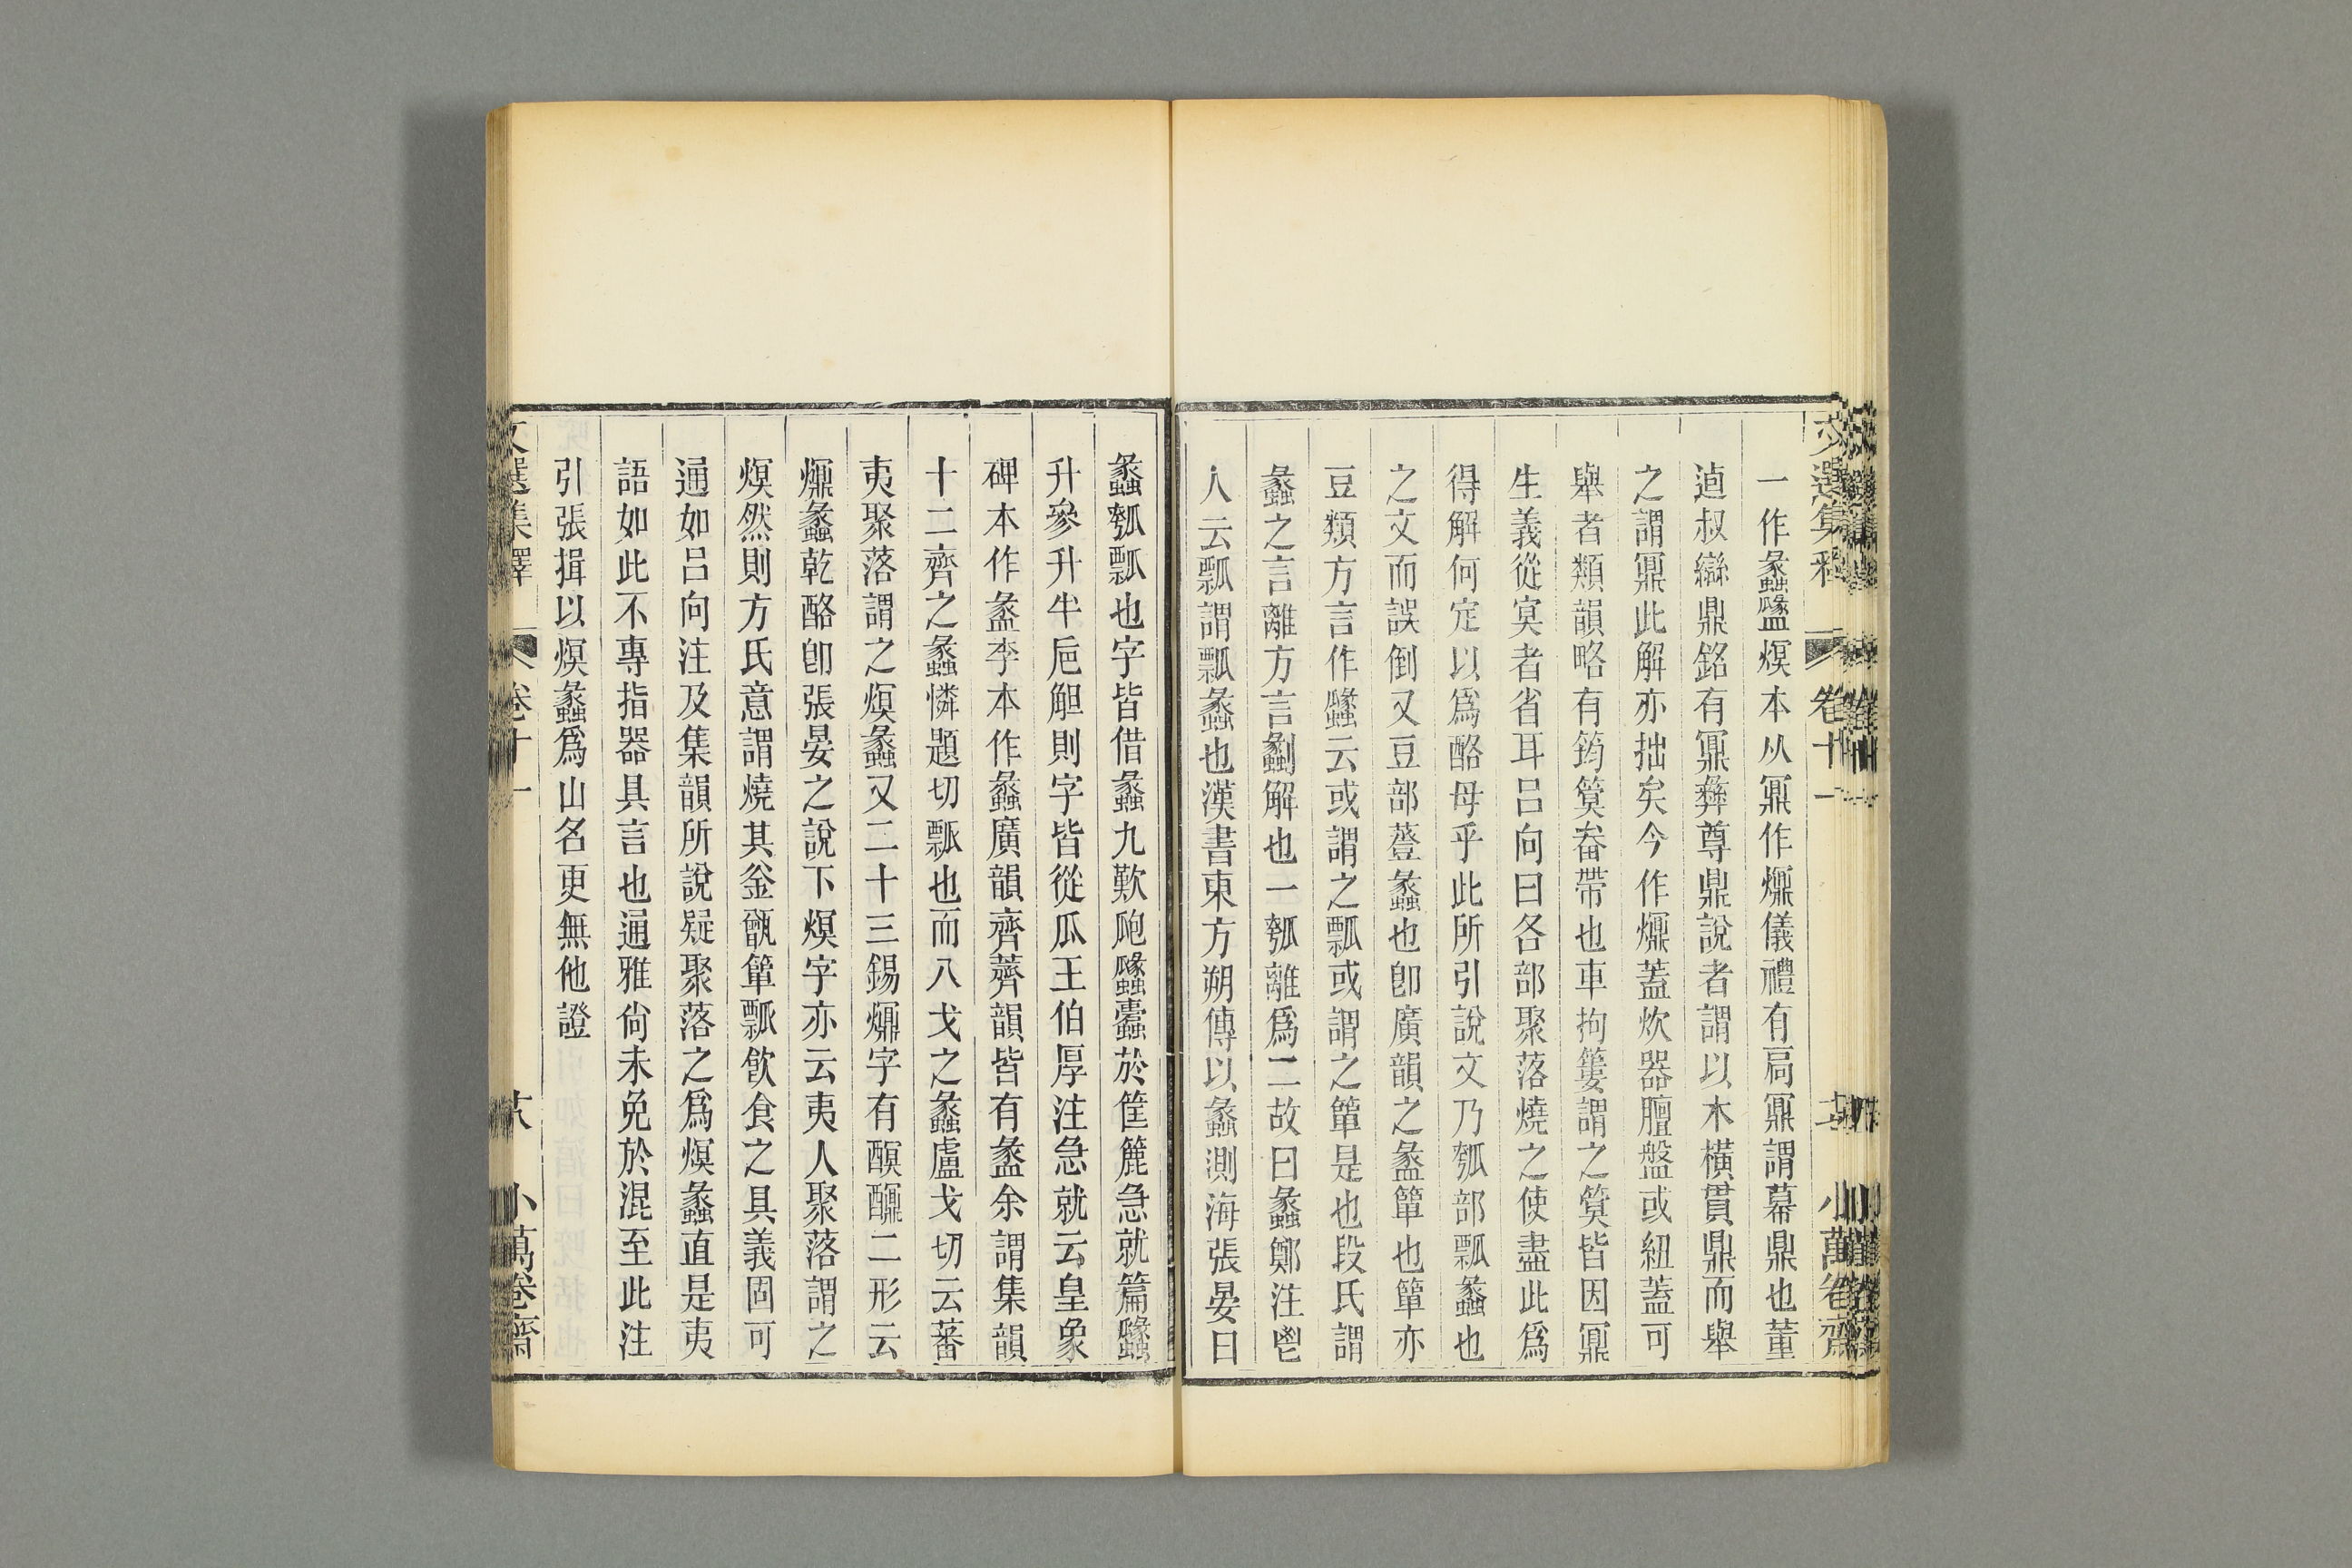 文選集釋 卷十一 小萬卷齋
一作蠡𧓽熐本从鼏作㸏儀禮有扃鼏謂幕鼎也董
逌叔䜌鼎銘有鼏彝尊鼎說者謂以木橫貫鼎而舉
之謂鼏此解亦拙矣今作㸏蓋炊器膻盤或紐蓋可
舉者類韻略有筠篔畚帶也車拘簍謂之篔皆因鼏
生義從冥者省耳呂向曰各部聚落燒之使盡此爲
得解何定以爲酪母乎此所引說文乃瓠部瓢蠡也
之文而誤倒又豆部䇺蠡也卽廣韻之盠簞也簞亦
豆類方言作𧓽云或謂之瓢或謂之簞是也段氏謂
蠡之言離方言劙解也一瓠離爲二故曰蠡鄭注鬯
人云瓢謂瓢蠡也漢書東方朔傳以蠡測海張晏曰
蠡瓠瓢也字皆借蠡九歎瓟𧓽蠹於筐簏急就篇𧓽
升參升半巵觛則字皆從瓜王伯厚注急就云皇象
碑本作盠李本作蠡廣韻齊薺韻皆有盠余謂集韻
十二齊之蠡憐題切瓢也而八戈之蠡盧戈切云蕃
夷聚落謂之熐蠡又二十三錫㸏字有䤉𨣱二形云
㸏蠡乾酪卽張晏之說下熐字亦云夷人聚落謂之
熐然則方氏意謂燒其釜甑簞瓢飲食之具義固可
通如呂向注及集韻所說疑聚落之爲熐蠡直是夷
語如此不專指器具言也通雅尙未免於混至此注
引張揖以熐蠡爲山名更無他證
文選集釋 卷十一 小萬卷齋